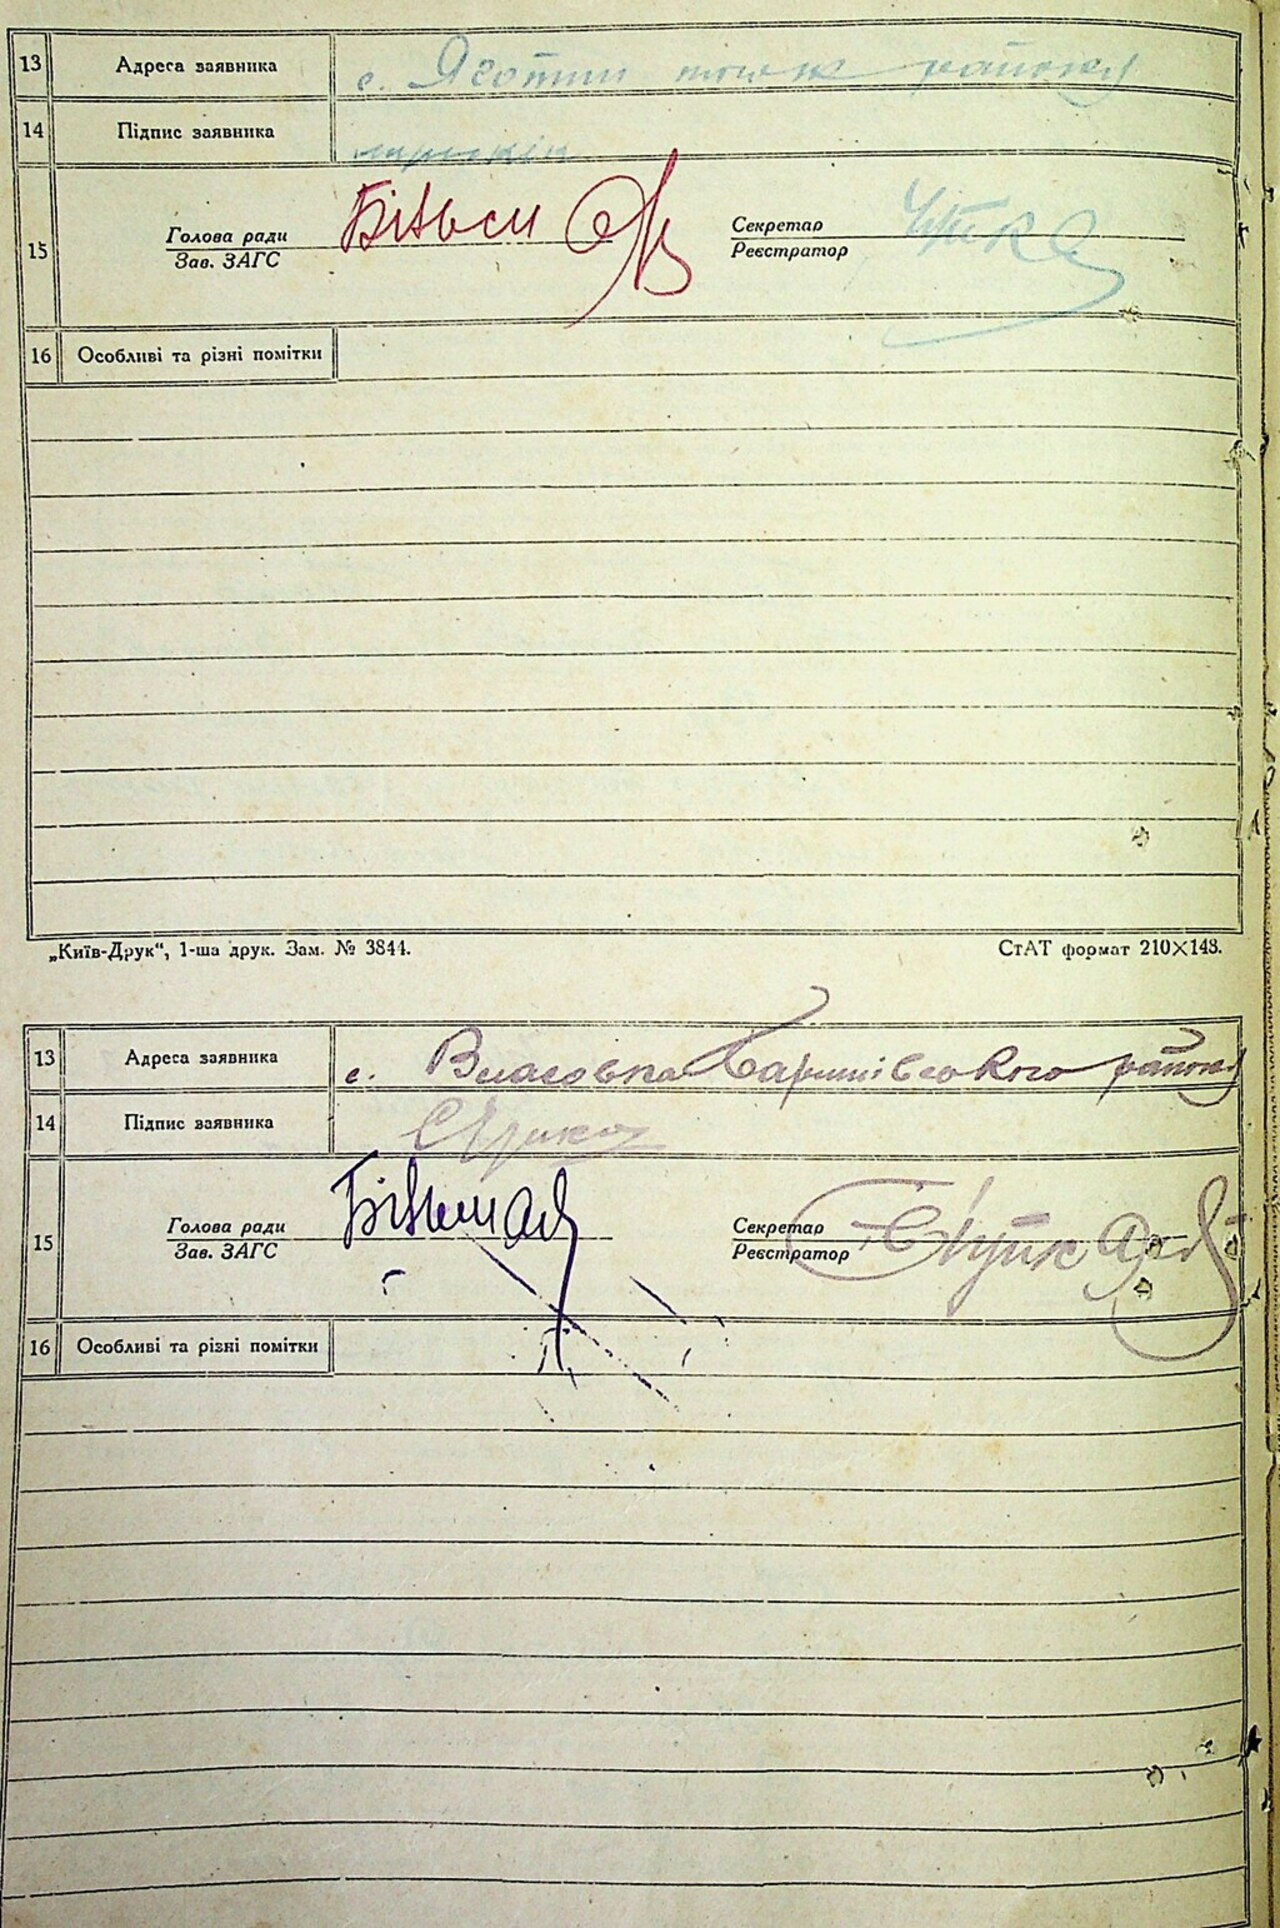 13 Адреса заявника с. Яготин того ж району
14 Підпис заявника
15 Голова ради
Зав. ЗАГС
Секретар
Реєстратор
16 Особливі та різні помітки
„Київ-Друк“, 1-ша друк. Зам. № 3844. СтАТ формат 210×148.
13 Адреса заявника с. Власовка Баришівського району
14 Підпис заявника
15 Голова ради
Зав. ЗАГС
Секретар
Реєстратор
16 Особливі та різні помітки